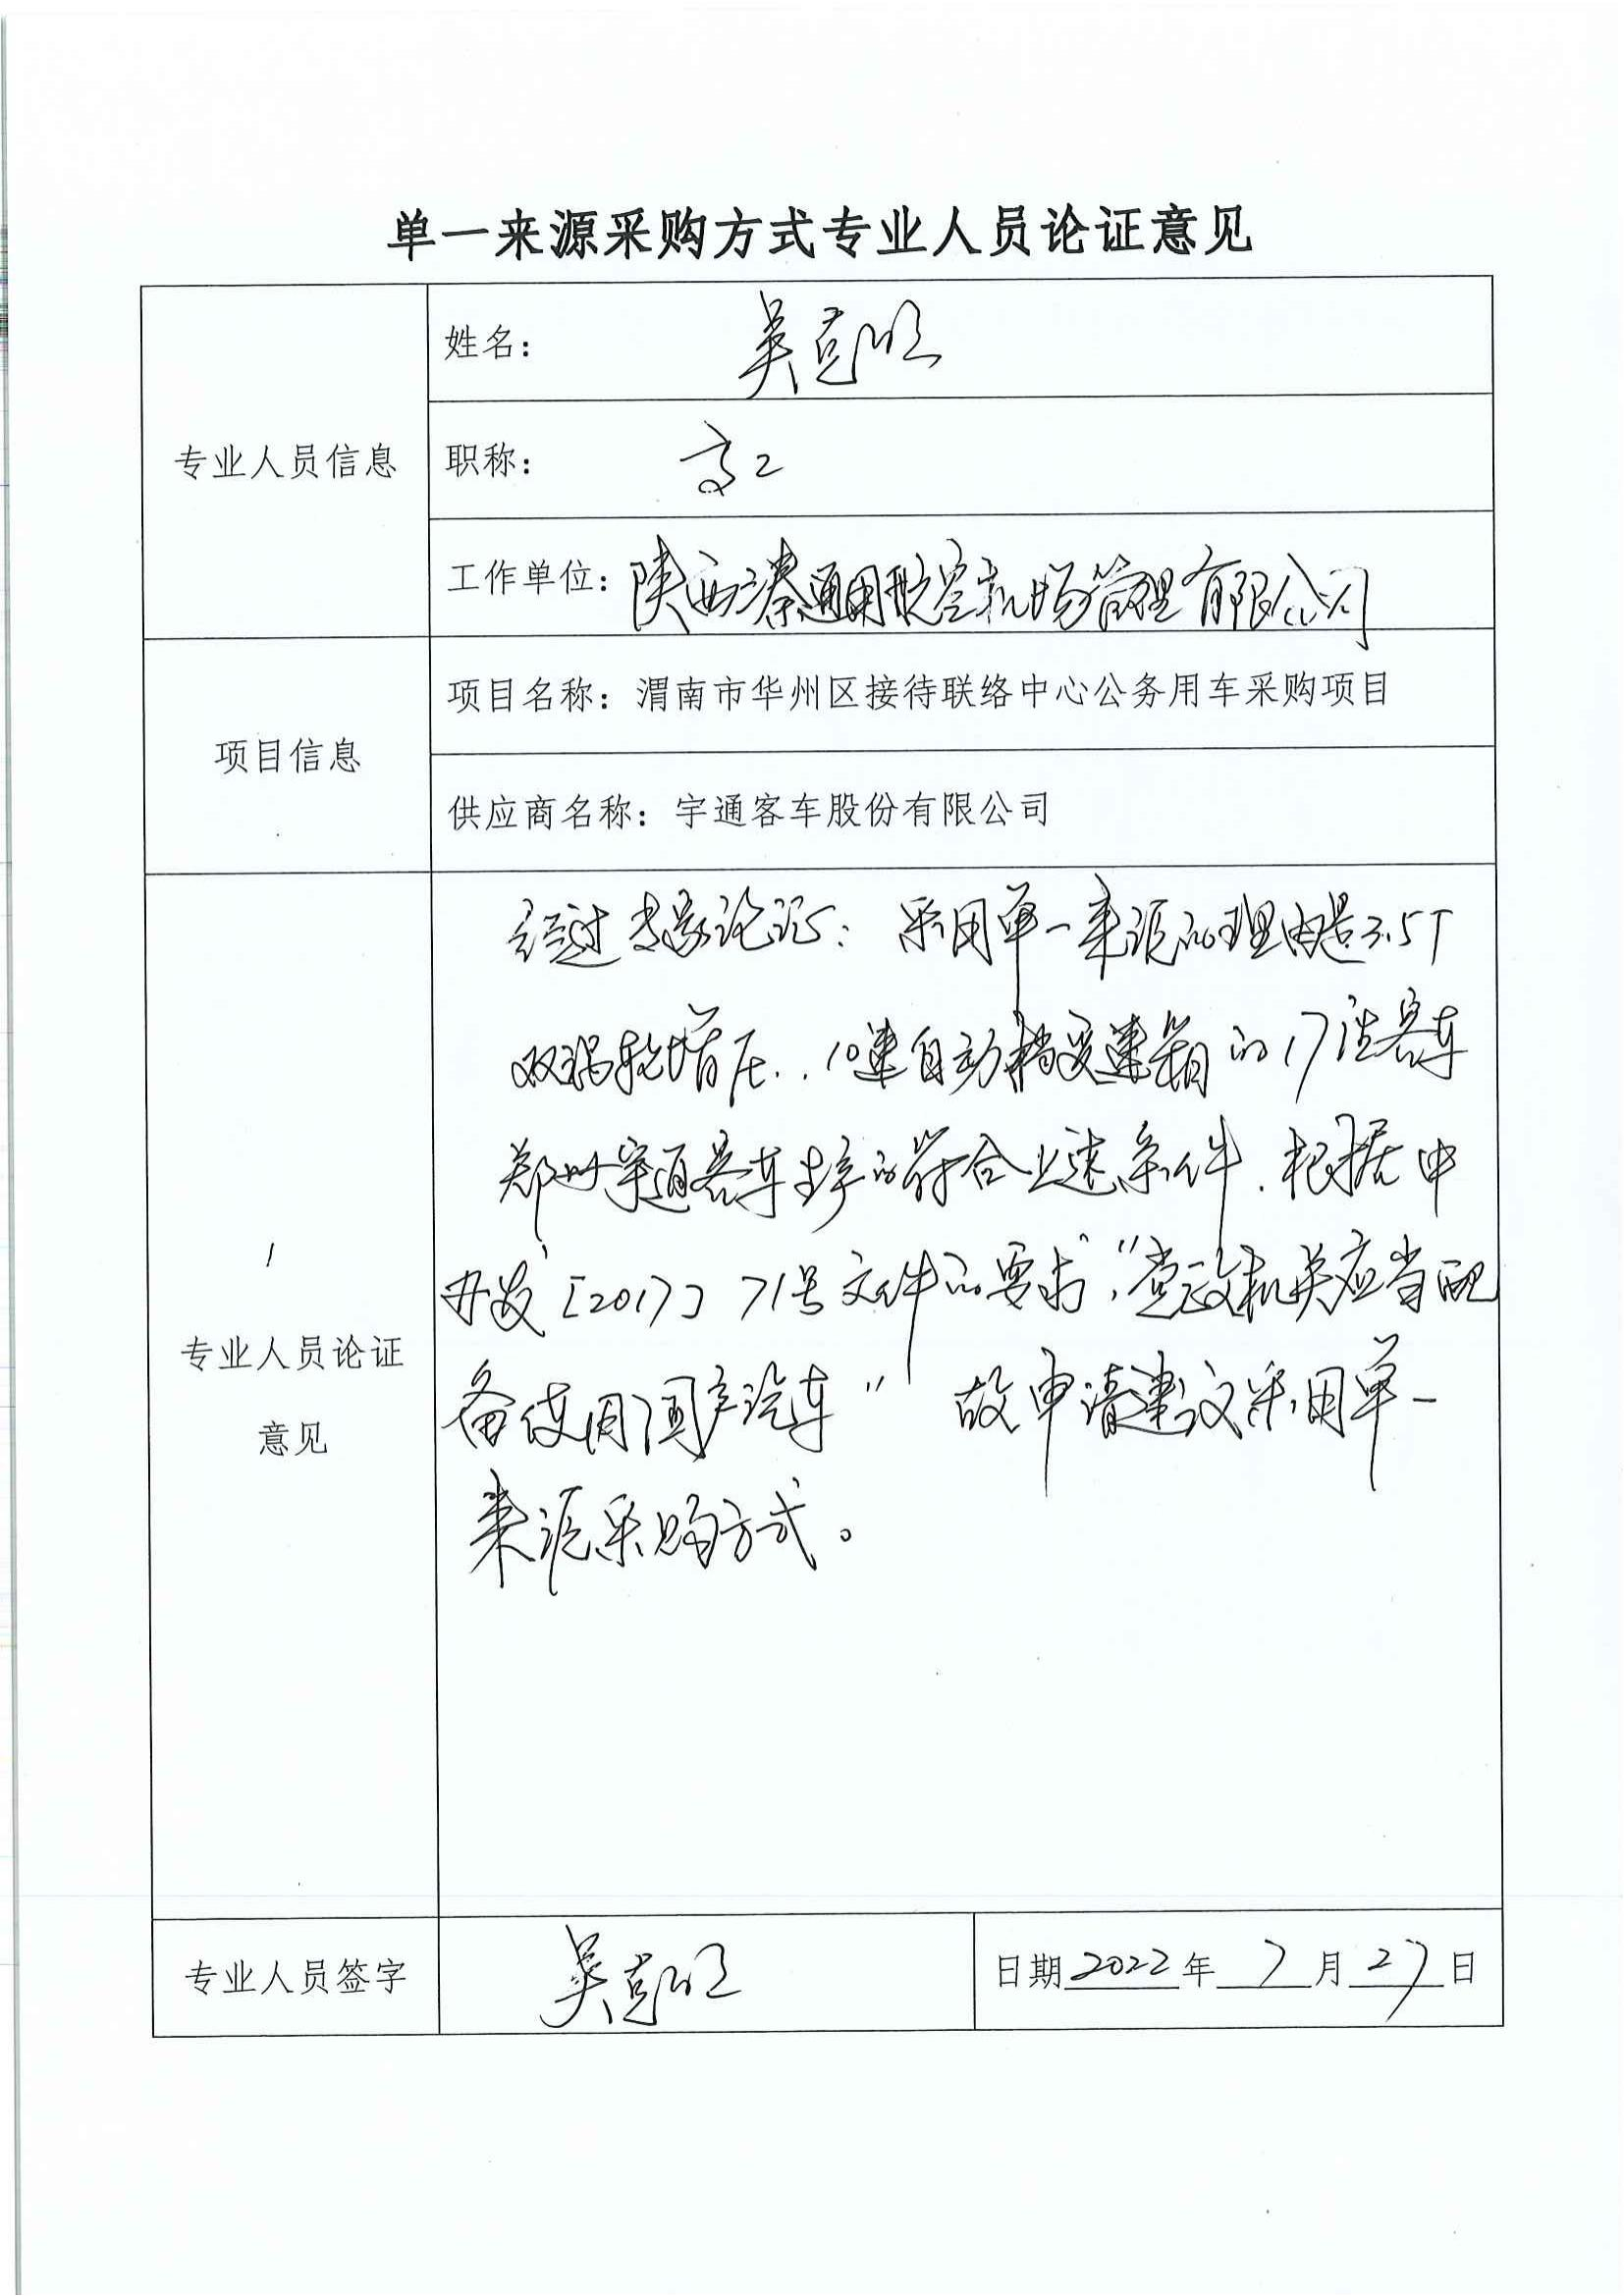 单一来源采购方式专业人员论证意见
专业人员信息
姓名：吴
职称：高工
工作单位：陕西秦通用航空机场管理有限公司
项目信息
项目名称：渭南市华州区接待联络中心公务用车采购项目
供应商名称：宇通客车股份有限公司
专业人员论证
意见
经过专家论证：采用单一来源的理由是3.5T
双涡轮增压..10速自动档变速箱的17座客车
郑州宇通客车生产的符合上述条件.根据中
办发［2017］71号文件的要求，“党政机关应当配
备使用国产汽车” 故申请建议采用单一
来源采购方式。
专业人员签字
吴
日期2022年7月27日